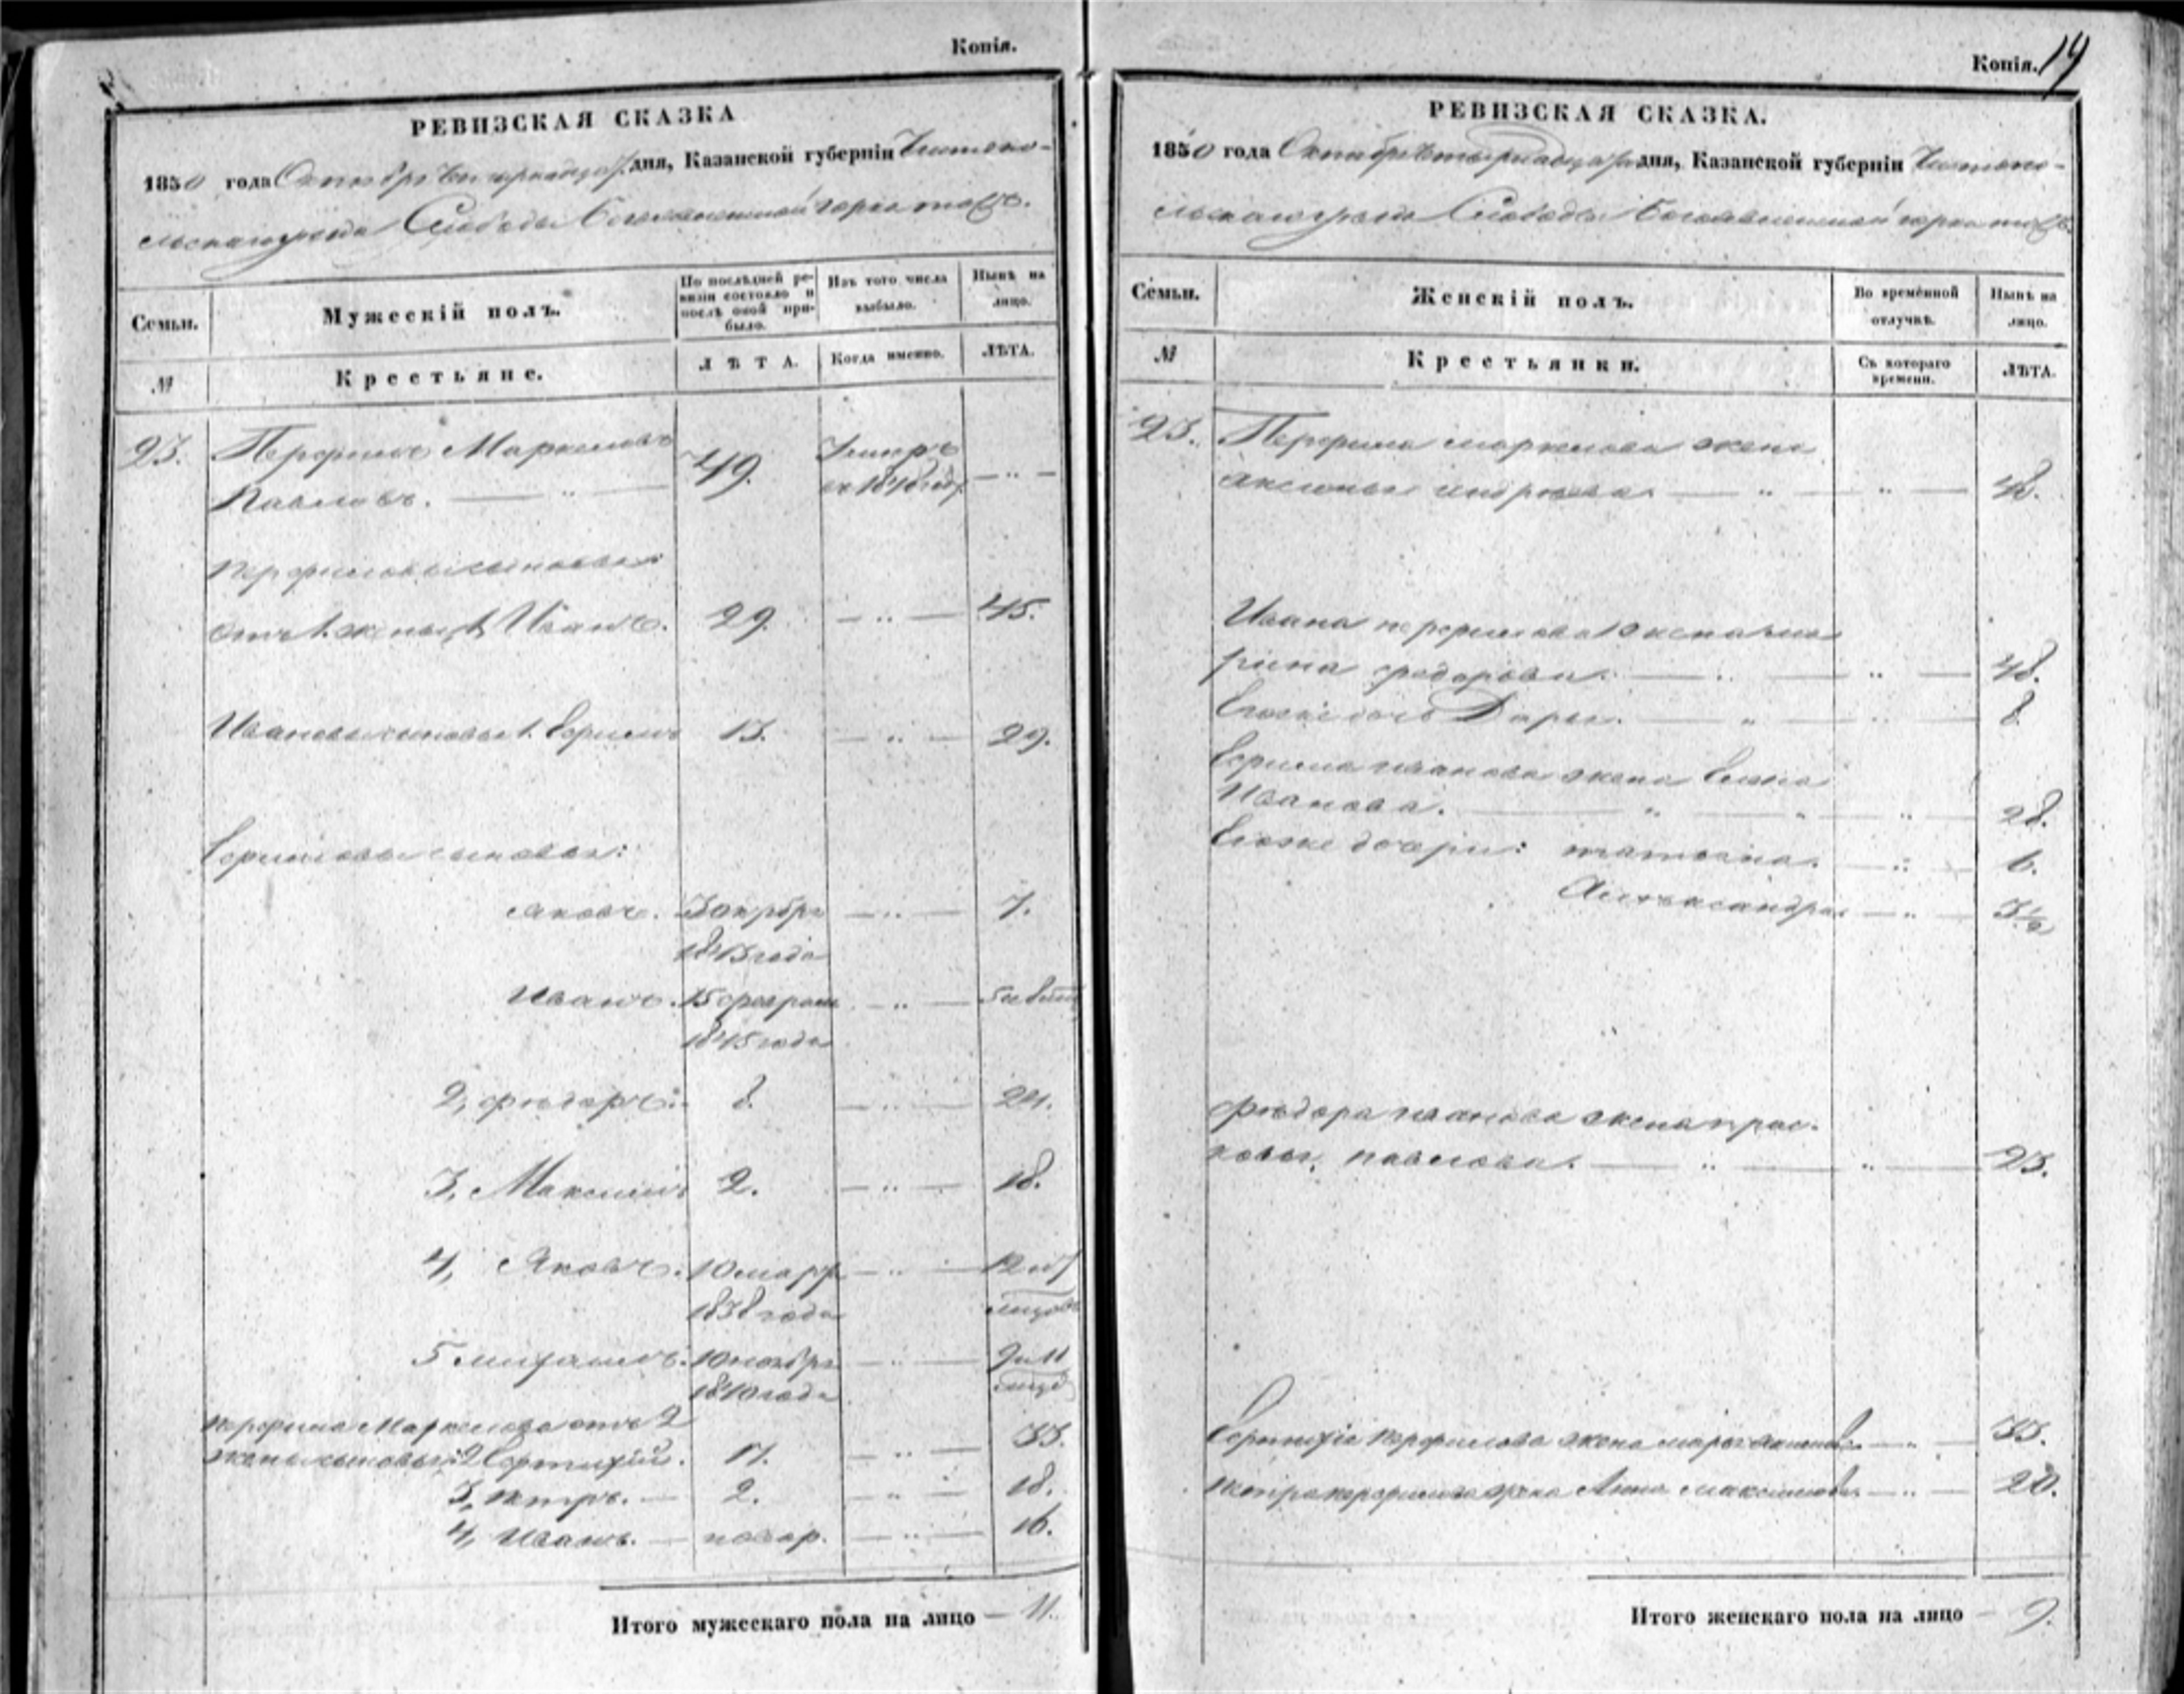 Копія.
РЕВИЗСКАЯ СКАЗКА
1850 года Октября дня, Казанской губерніи Чистопо-
льскаго уезда Слободы Богоявленской горка тожъ.
Семьи.
Мужескій полъ.
По послѣдней ре-
визіи состояло и
послѣ оной при-
было.
Изъ того числа
выбыло.
Нынѣ на
лицо.
№
Крестьяне.
ЛѢТА.
Когда именно.
ЛѢТА.
23.
Перфилъ Маркеловъ
Павловъ.
49.
Умеръ
въ 1840 году
Перфиловы сыновья
отъ 1. жены, 1, Иванъ.
29.
45.
Ивановы сыновья 1. Ефимъ
13.
29.
Ефимовы сыновья:
Яковъ.
1843 года
7.
Иванъ.
15 февраля
1845 года
2, Фѣдоръ.
8.
24.
3, Максимъ
2.
18.
4, Яковъ.
10 марта
1838 года
12 и 7
месяцовъ
5 Михаилъ.
10 ноября
1840 года
9 и 11
месяц
Перфила Маркелова отъ 2
жены сыновья: 2 Евтифій.
17.
33.
3, Петръ.
2.
18.
4, Иванъ.
новор.
16.
Итого мужескаго пола на лицо
11.
Копія. 19
РЕВИЗСКАЯ СКАЗКА.
1850 года Октября дня, Казанской губерніи Чистопо-
льскаго уезда Слободы Богоявленской горка тожъ.
Семьи.
Женскій полъ.
Во времѣнной
отлучкѣ.
Нынѣ на
лицо.
№
Крестьянки.
Съ котораго
времени.
ЛѢТА.
23.
Перфила Маркелова жена
Аксинья
48.
Ивана Перфилова жена Ма
рина Федорова.
48.
Его же дочь Дарья.
8.
Ефима Иванова жена Елена
Иванова.
28.
Его же дочери: Татьяна.
6.
Александра
3 ½
Фѣдора Иванова жена Прас-
ковья Павлова.
23.
Евтифія Перфилова жена Марья
33.
Петра Перфилова жена Анна Максимова
20.
Итого женскаго пола на лицо
9.